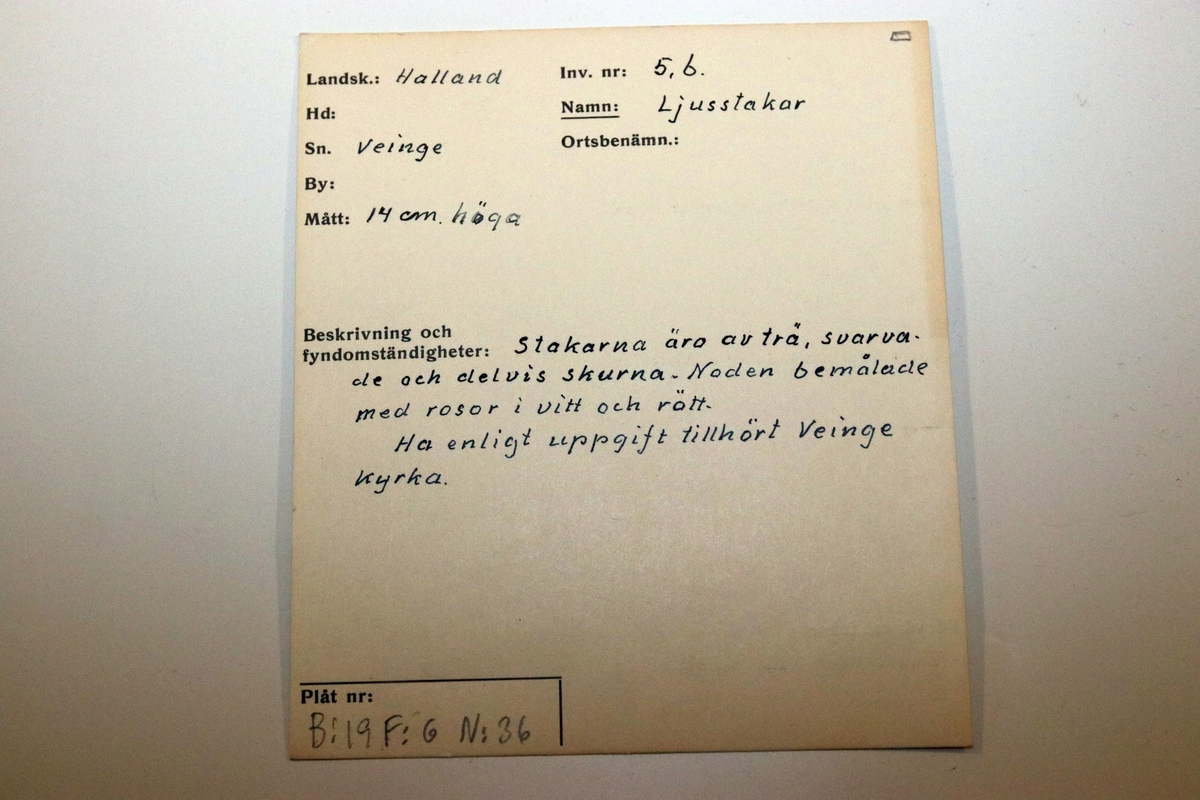 Landsk.: Halland
Hd:
Sn. Veinge
By:
Mått: 14 cm. höga
Inv. nr: 5, b.
Namn: Ljusstakar
Ortsbenämn.:
Beskrivning och
fyndomständigheter: Stakarna äro av trä, svarva-
de och delvis skurna. Noden bemålade
med rosor i vitt och rött.
Ha enligt uppgift tillhört Veinge
Kyrka.
Plåt nr:
B:19 F:6 N:36